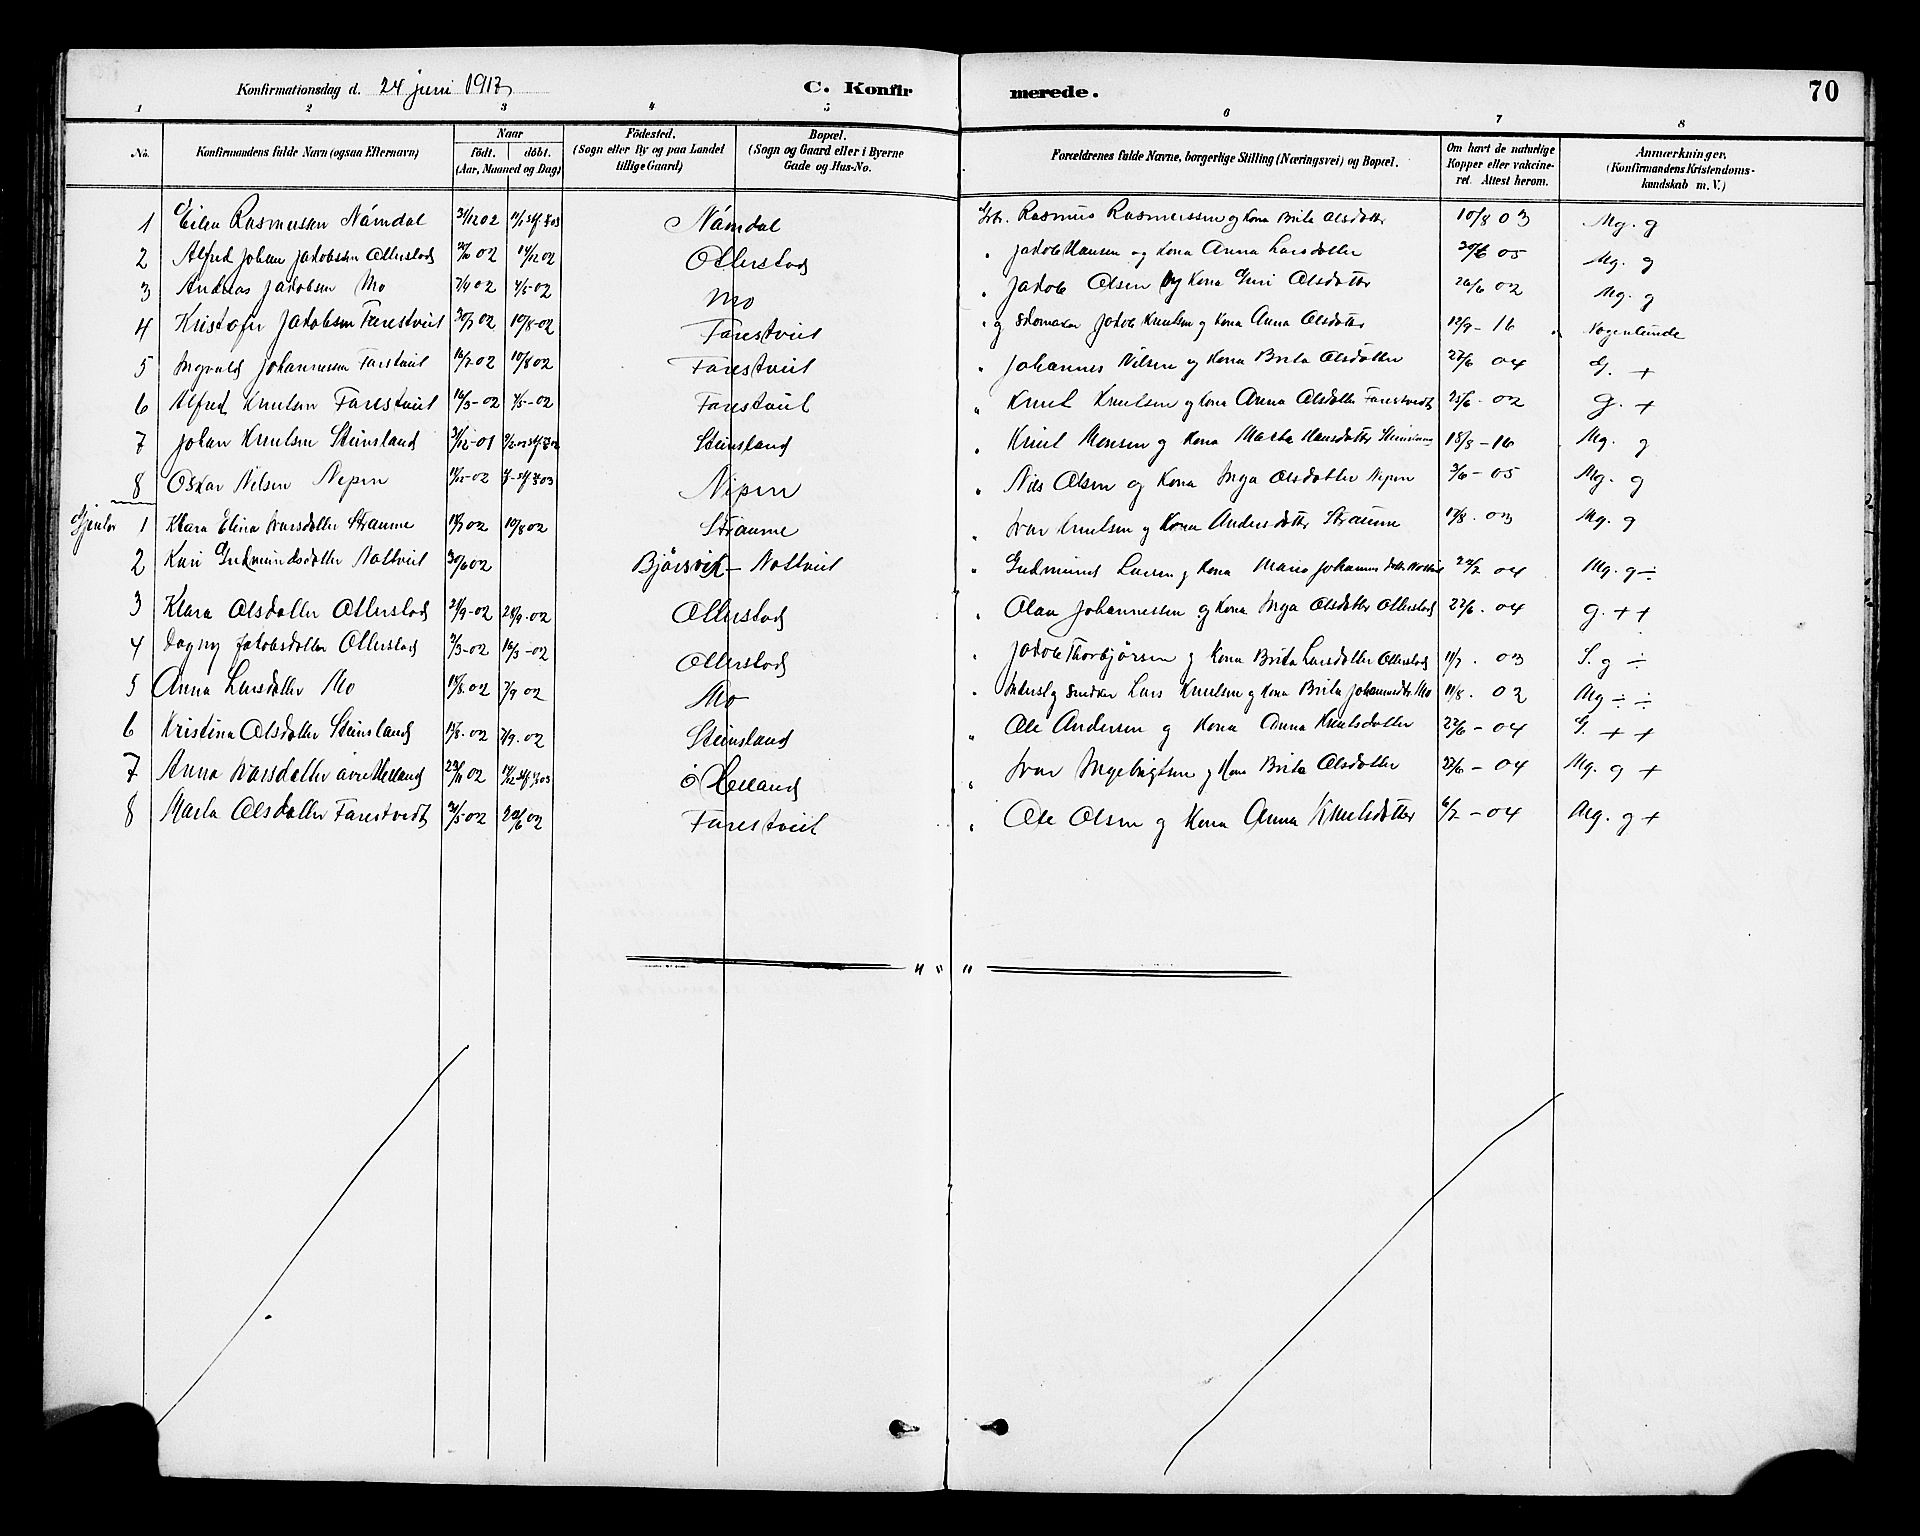 Konfirmationsdag d. 24 juni 1917
C. Konfirmerede.
70
1 2 3 4 5 6 7 8
No. Konfirmandens fulde Navn (ogsaa Efternavn) Naar födt. döbt. (Aar, Maaned og Dag) Födested. (Sogn eller By og paa Landet tillige Gaard) Bopæl. (Sogn og Gaard eller i Byerne Gade og Hus-No. Forældrenes fulde Navne, borgerlige Stilling (Næringsvei) og Bopæl. Om havt de naturlige Kopper eller vakcineret. Attest herom. Anmærkninger, (Konfirmandens Kristendomskundskab m. V.)
1 Rasmussen Námdal 31/12 02 Námdal Gbr. Rasmus Rasmussen og Kona Brita Olsdotter 10/8 03 Mg. g
2 Alfred Johan Jakobsen Otterstad 02 14/12 02 Otterstad " Jakob Hansen og Kona Anna Larsdotter 05 Mg. g
3 Andreas Jakobsen Mo 7/4 02 4/5-02 Mo " Jakob Olsen og Kona Guri Olsdotter 26/6 02 Mg. g
4 Kristofer Jakobsen Farestveit 30/7 02 10/8-02 Farestveit " g skomaker Jakob Knutsen og Kona Anna Olsdotter 12/9-16 Nogenlunde
5 Ingvald Johannessen Farestveit 16/7 02 10/8 02 Farestveit " Johannes Nilsen og Kona Brita Olsdotter 27/6 04 G. +
6 Alfred Knutsen Farestveit 16/3-02 4/5-02 Farestveit " Knut Knutsen og Kona Anna Olsdotter Farestvedt 25/6-02 g. +
7 Johan Knutsen Steinsland 31/12-01 Steinsland " Knut Monsen og Kona Marta Hansdotter 18/3-16 Mg. g
8 Oskar Nilsen Nipen -02 Nipen " Nils Olsen og Kona Inga Olsdotter Nipen 3/6-05 Mg. g
Gjentor 1 Klara Elina Ivarsdotter Straume 02 10/8 02 Straume " Ivar Knutsen og Kona Andersdotter Straume 17/8. 03 Mg. g
2 Kari Gudmundsdotter Nottveit 30/6 02 Bjørsvik - Nottveit " Gudmund Larsen g Kona Maria Johannesdotter 04 Mg. g ÷
3 Klara Olsdotter Otterstad 2/9-02 28/9-02 Otterstad " Olav Johannessen og Kona Inga Olsdotter Otterstad 27/6. 04 g. ++
4 Dagny Jakobsdotter Otterstad 3/3-02 16/3-02 Otterstad " Jakob Thorbjørsen g Kona Brita Larsdotter Otterstad 11/7. 03 S. g ÷
5 Anna Larsdotter Mo 02 7/9 02 Mo " snikkar Lars Knutsen og Kona Brita Johannesdtr Mo 11/8. 02 Mg ÷ ÷
6 Kristina Olsdotter Steinsland 02 7/9. 02 Steinsland " Ole Andersen og Kona Anna Knutsdotter 27/6-04 G. + +
7 Anna Ivarsdotter øvre Helland 02 ö Helland " Ivar Ingebrigtsen g Kona Brita Olsdotter 27/6-04 Mg. g +
8 Marta Olsdotter Farestvedt 31/5-02 22/6 02 Farestveit " Ole Olsen g Kona Anna Knutsdotter 6/7-04 Mg. g +